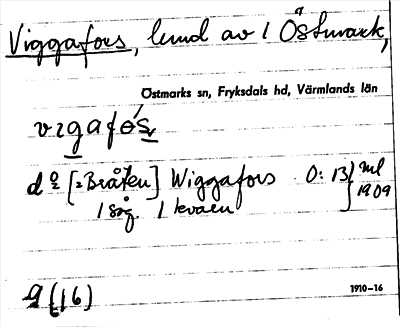 Viggafors, lund av 1 Östmark,
Östmarks sn, Fryksdals hd, Värmlands län
vıgafós
do [=Bråten] Wiggafors O: 13 ml 1909
1 såg 1 kvarn
g (16)
1910-16